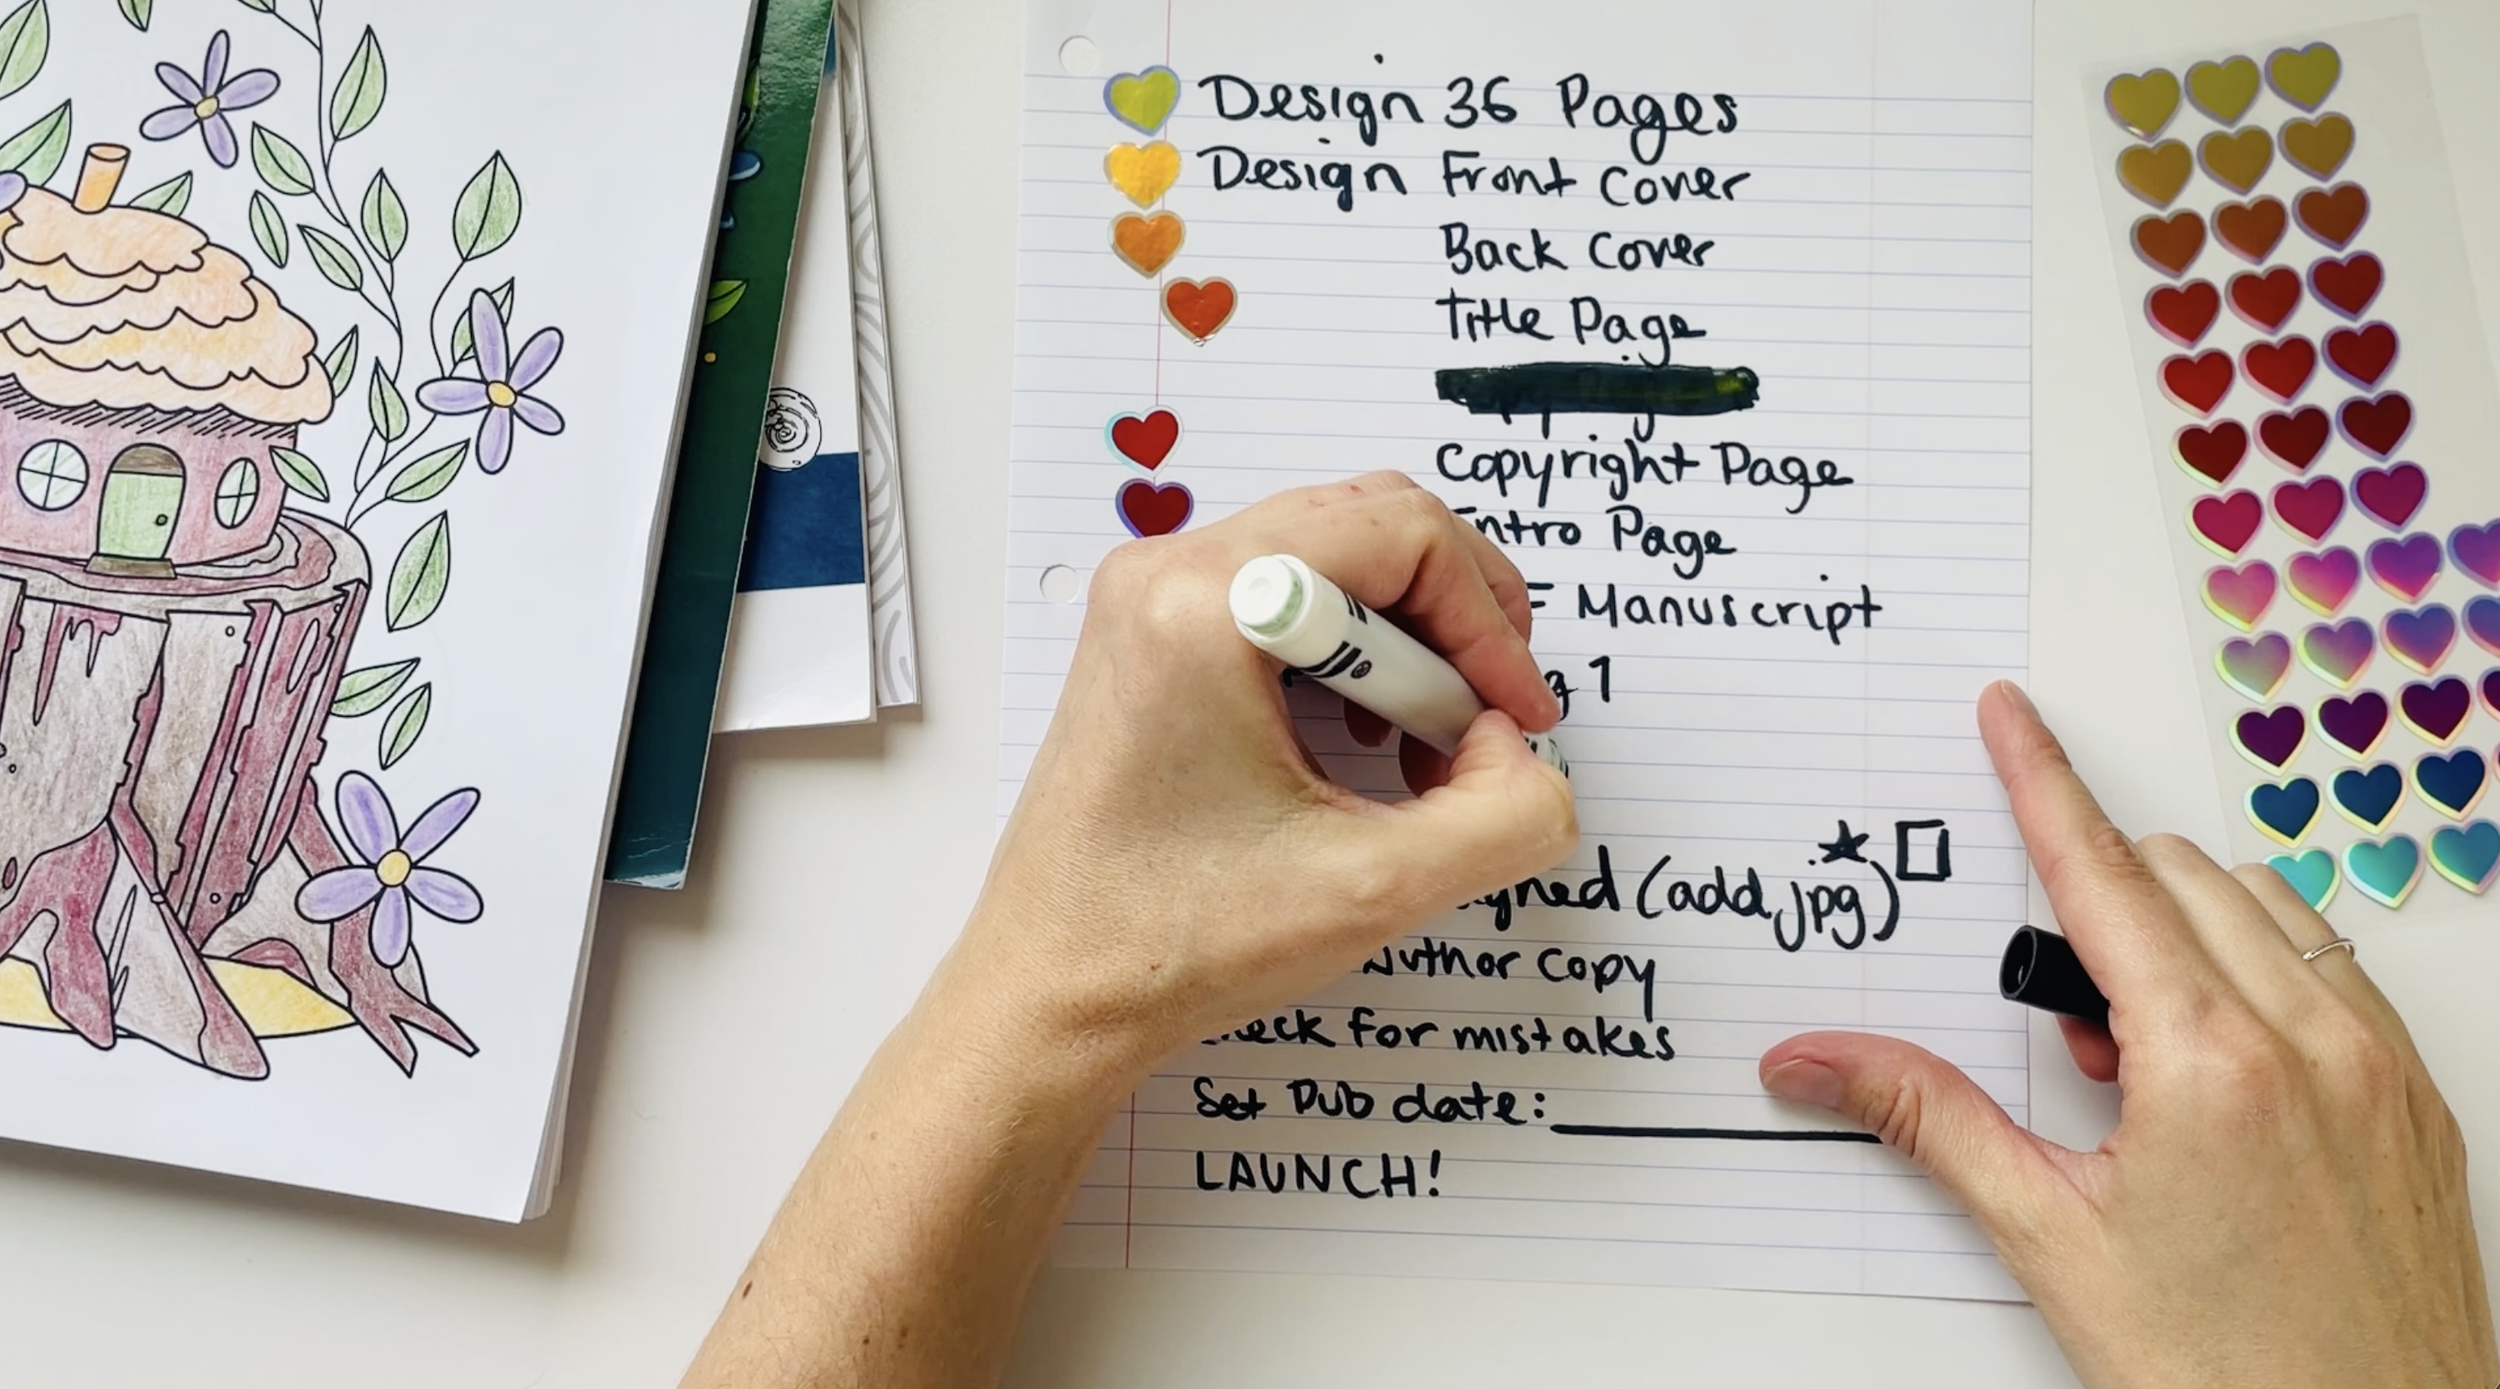 Design 36 Pages
Design Front Cover
Back Cover
Title Page
Copyright Page
Intro Page
Manuscript
1
(add .jpg)
Author Copy
for mistakes
Set Pub date:
LAUNCH!